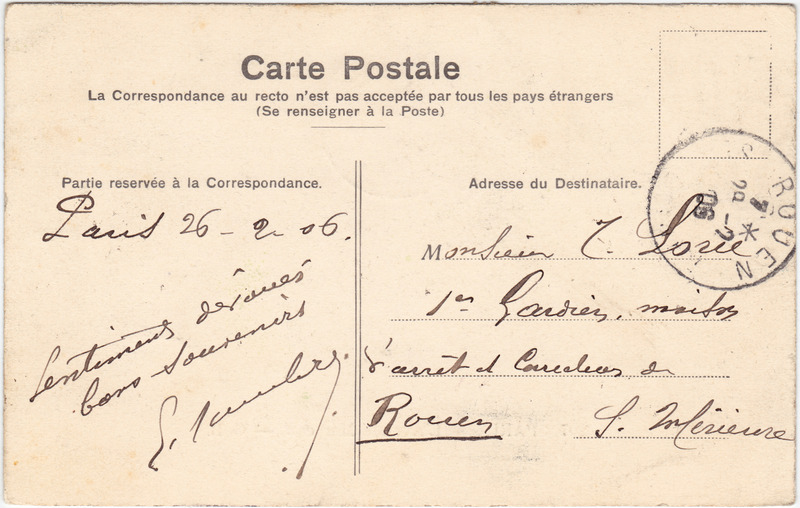 Carte Postale
La Correspondance au recto n'est pas acceptée par tous les pays étrangers
(Se renseigner à la Poste)
Partie reservée à la Correspondance.
Paris 26 - 2 06.
Sentiments dévoués
bons souvenirs
Adresse du Destinataire.
Monsieur
1er Gardien, maison
d'arrêt et de
Rouen
S. Inférieure
ROUEN